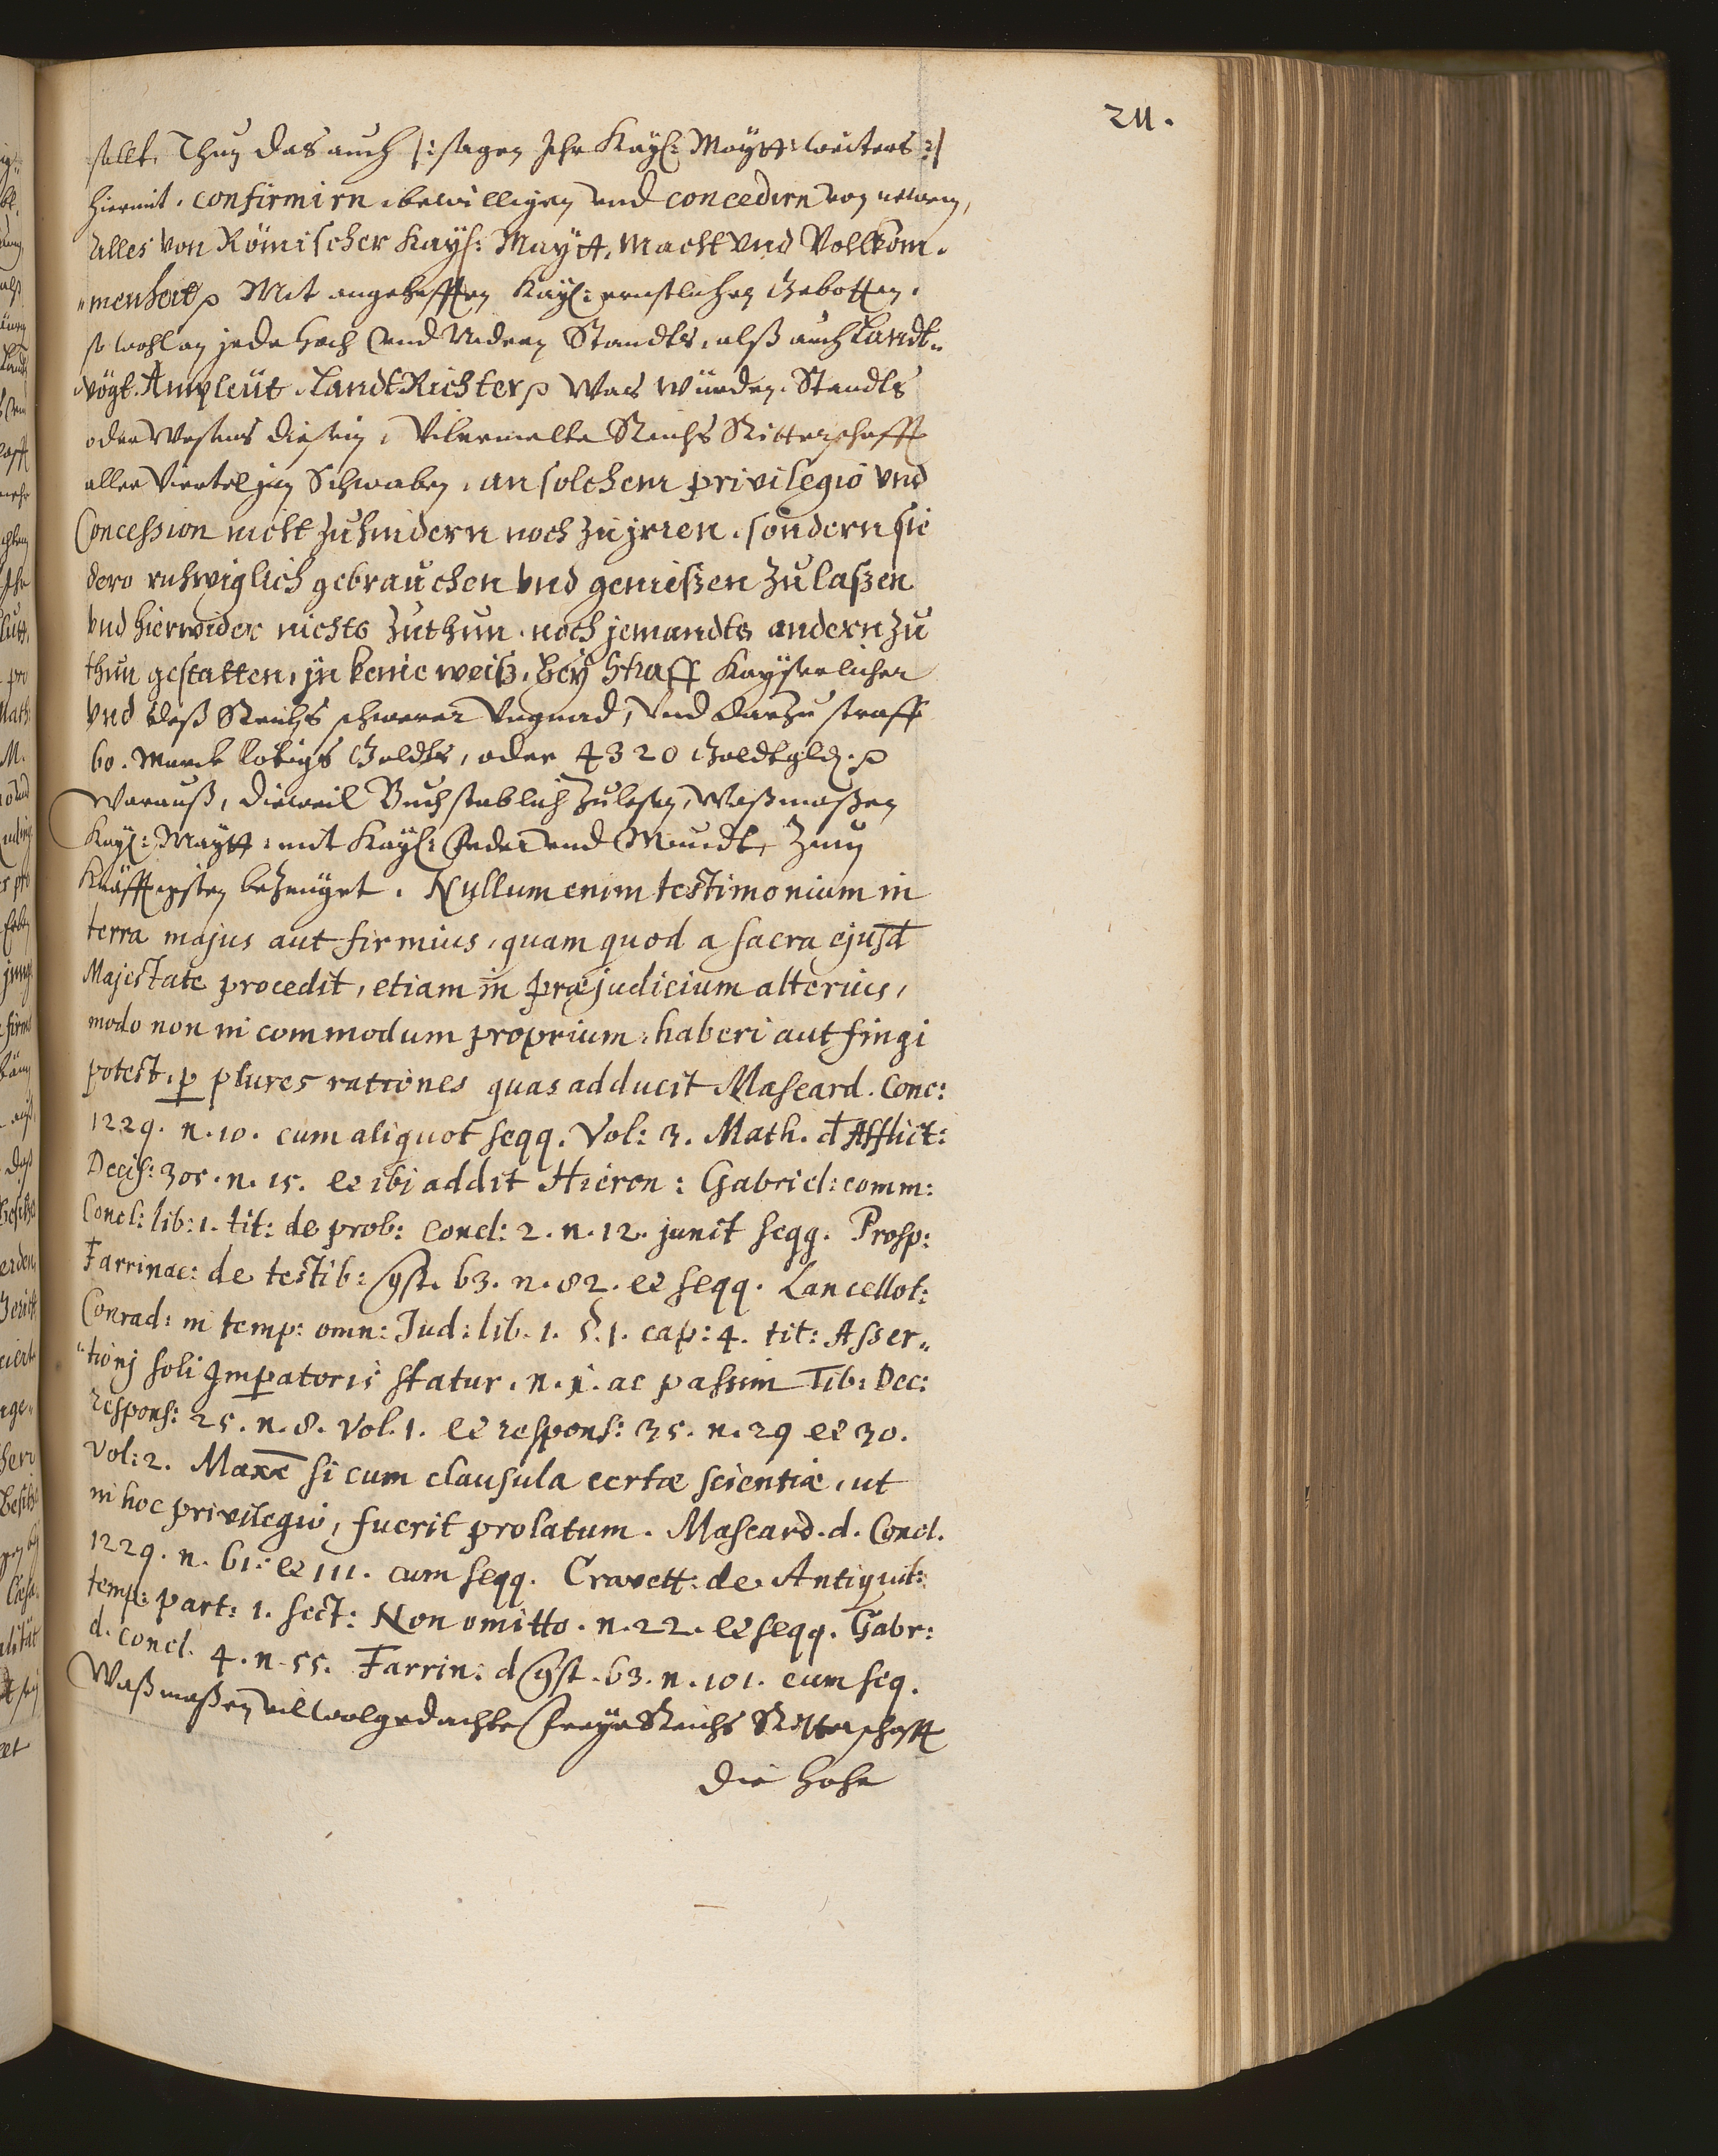 211.
sellt, Thun das auch /: sagen Ihr Kays: Maytt: weiters :/
hiermit, confirmirn, bewilligen vnd concedirn von newen,
Alles von Römischer Kays: Maytt. Macht vnd Vollkom-
"menheit p Mit angehefften Kays: ernstlichen Gebotten,
so wohl an jede Hoch vnd Nidern Standts, alß auch Landt-
vögt, Amptleüt, LandtRichter p Was würden, Standts
oder Wesens die sein, Vilermelte Reichs Ritterschafft
aller Viertel jn Schwaben, an solchem privilegio vnd
Concession nicht zuhindern noch zu jrren, sondern sie
dero ruhwiglich gebrauchen vnd genießen zulaßen
vnd hierwider nichts zuthun, noch jemandts andern zu
thun gestatten, jn keine weiß, bey Straff Kayserlicher
vnd deß Reichs schwerer Vngnad, vnd darzu straff
60. Marck lötigs Goldts, oder 4320 Goldtgld. p
Warauß, dieweil Buchstablich zulesen, Waßmaßen
Kays: Maytt: mit Kays: Feder vnd Mundt, zum
Kräfftigsten bezeuget. Nullum enim testimonium in
terra majus aut firmius, quam quod a sacra ejusd
Majestate procedit, etiam in præjudicium alterius,
modo non in commodum proprium, haberi aut fingi
potest, p plures rationes quas adducit Mascard. Conc:
1229. n. 10. cum aliquot seqq. Vol: 3. Math. d Afflict:
Decis: 305. n. 15. et ibi addit Hieron: Gabriel: comm:
Concl: lib: 1. tit: de prob: concl: 2. n. 12. junct seqq. Prosp:
Farrinac: de testib: qst. 63. n. 82. et seqq. Lancellot:
Conrad: in temp: omn: Jud: lib. 1. §. 1. cap: 4. tit: Asser-
"tionj soli Jmpatoris statur. n. 1. ac passim Tib: Dec:
respons: 25. n. 8. Vol. 1. et respons: 35. n. 29 et 30.
Vol: 2. Maxe si cum clausula certæ scientiæ, ut
in hoc privilegio, fuerit prolatum. Mascard. d. Concl.
1229. n. 61. et 111. cum seqq. Cravett: de Antiquit:
temp: part: 1. sect: Non omitto. n. 22. et seqq. Gabr:
d. concl. 4. n. 55. Farrin: d qst. 63. n. 101. cum seq.
Waßmaßen vilwolgedachte Freye Reichs Ritterschafft
die hohe